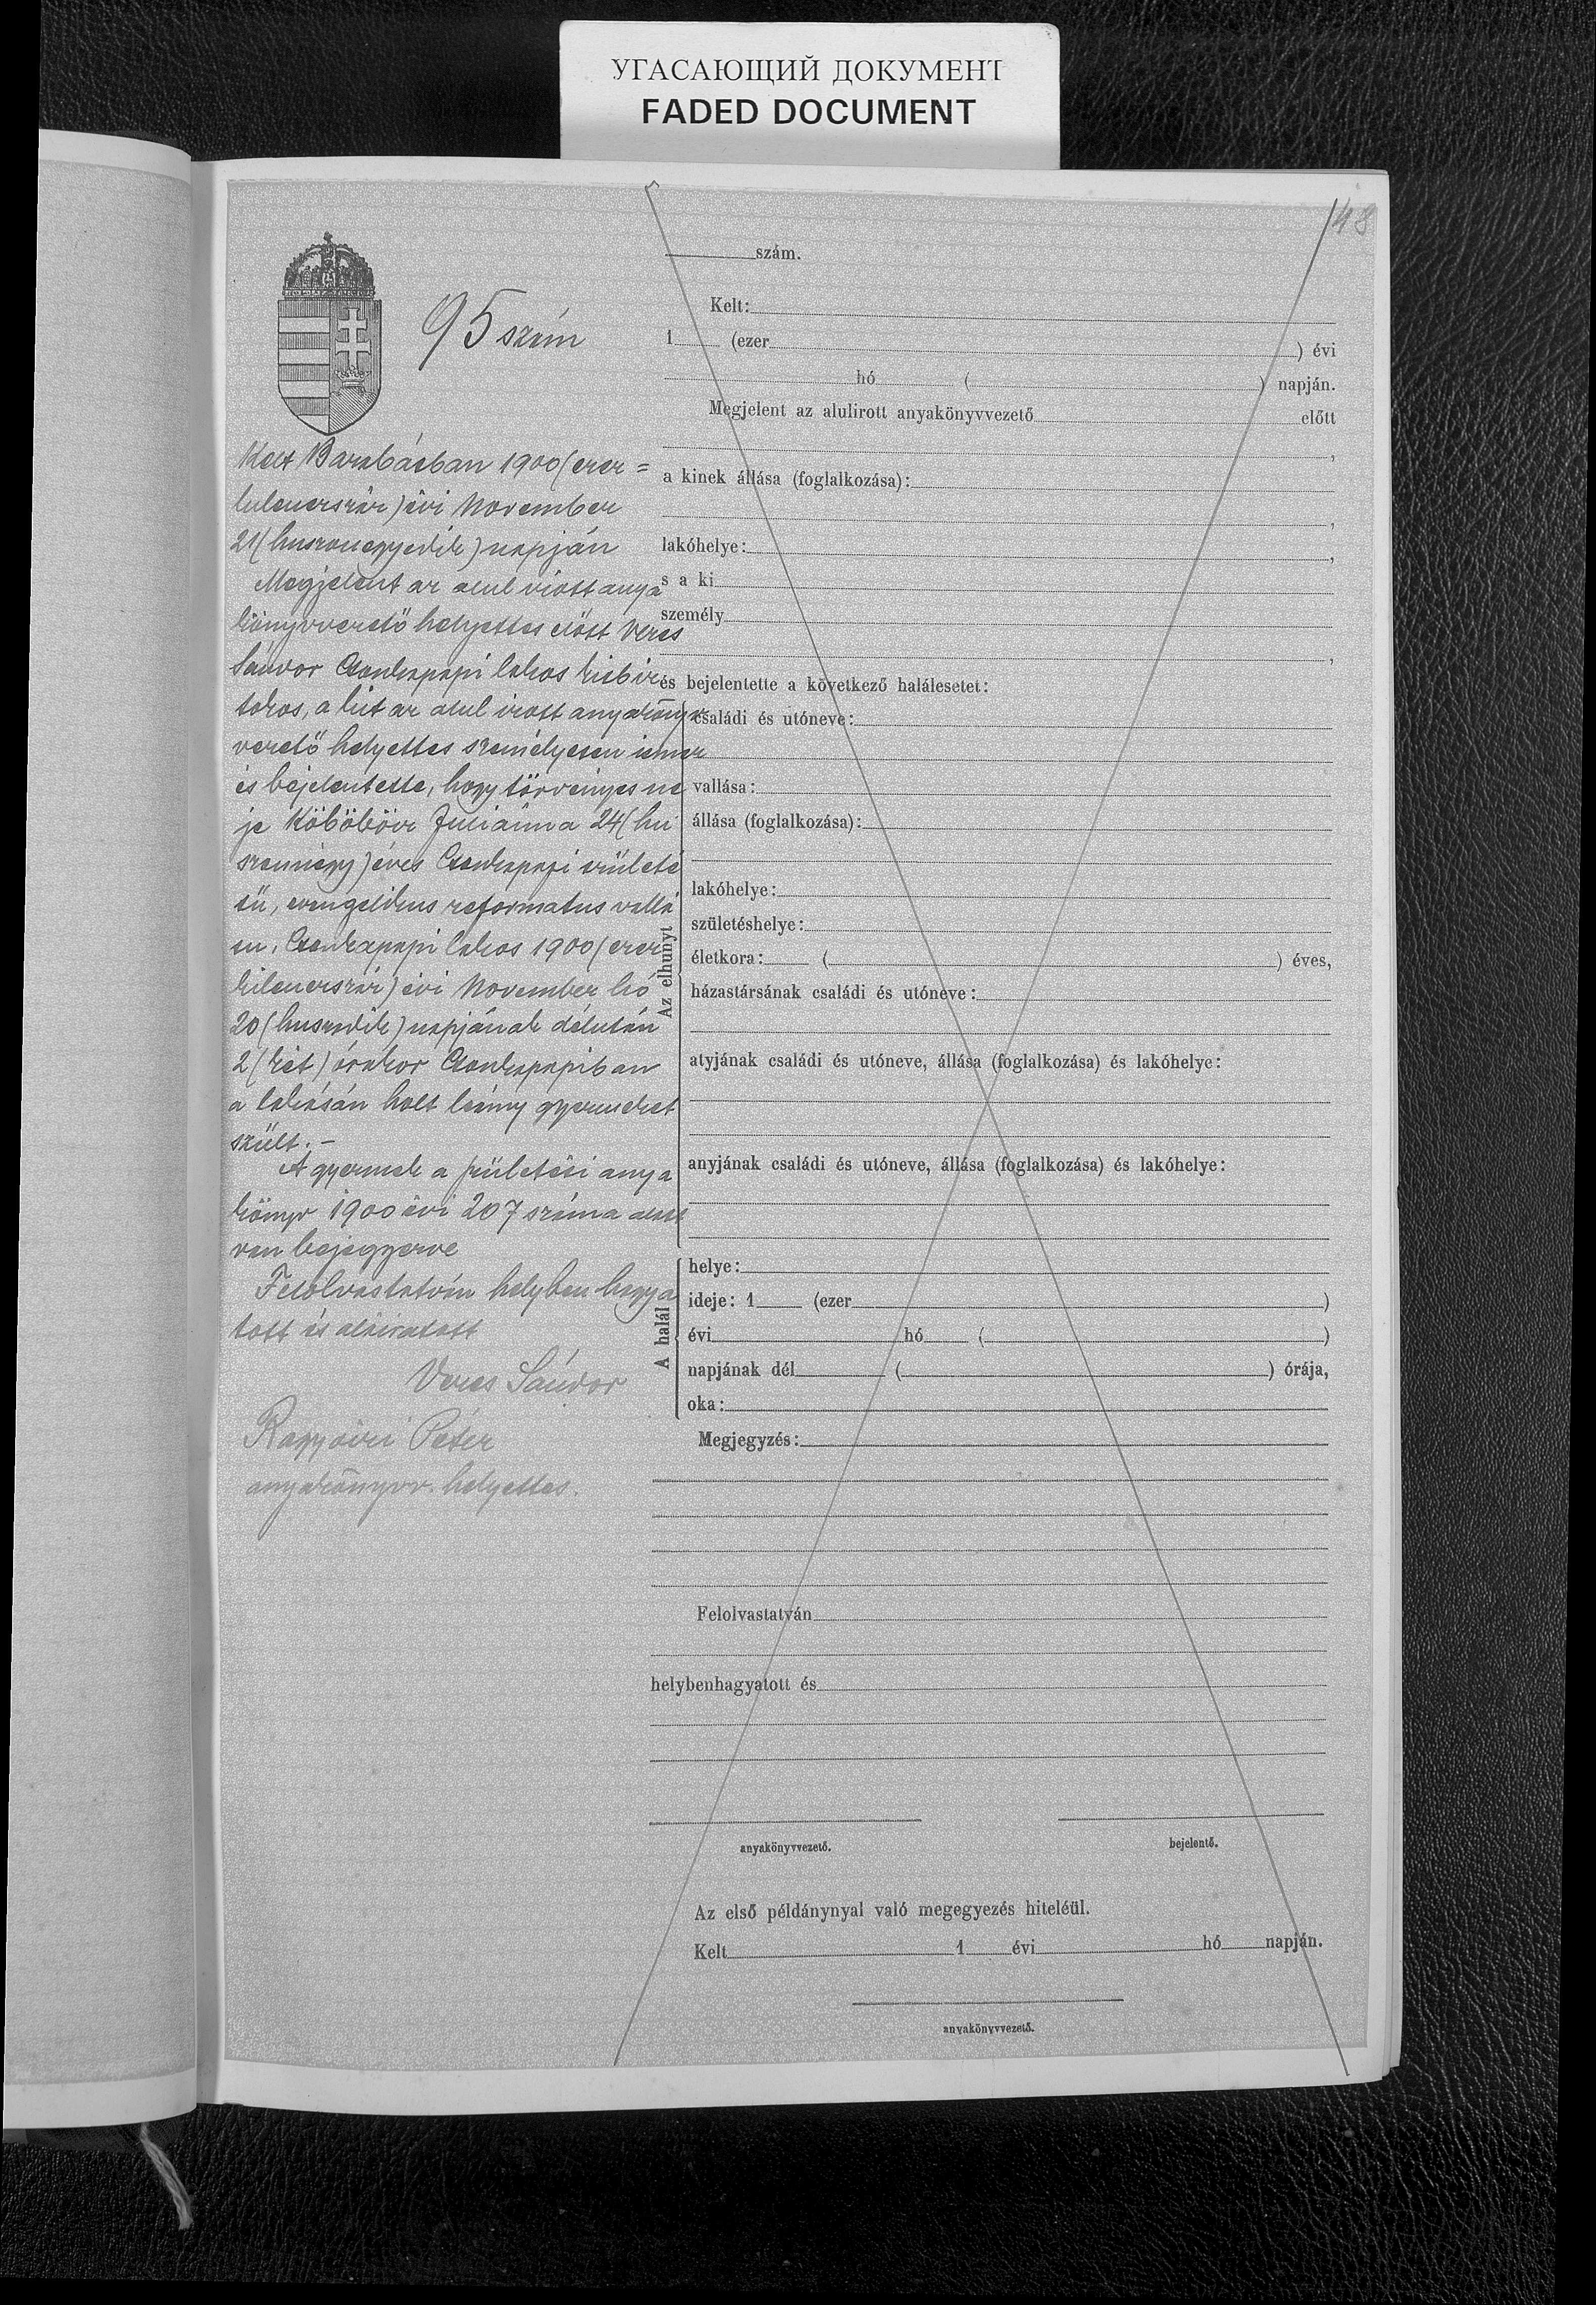 УГАСАЮЩИЙ ДОКУМЕНТ
FADED DOCUMENT
148
95 szám
Kelt Barabásban 1900 (ezer=
kilencszáz) évi November
21 (huszonegyedik) napján
Megjelent az alul irott anya
könyvvezető helyettes előtt Veres
Sándor Csonkapapi lakos kisbir
tokos, a kit az alul irott anyakönyv
vezető helyettes személyesen ismer
és bejelentette, hogy törvényes ne
je Köböböcz Juliánna 24 (hu
szonnégy) éves Csonkapapi születé
sü, evangelikus reformatus vallá
su, Csonkapapi lakos 1900 (ezer
kilencszáz) évi November hó
20 (huszadik) napjának délután
2 (két) órakor Csonkapapiban
a lakásán holt leány gyermeket
szült. –
A gyermek a születési anya
könyv 1900 évi 207 száma alatt
van bejegyezve
Felolvastatván helyben hagya
tott és aláiratott
Veres Sándor
Péter
anyakönyvv. helyettes.
szám.
Kelt:
1 (ezer ) évi
hó ( ) napján.
Megjelent az alulirott anyakönyvvezető előtt
,
a kinek állása (foglalkozása):
,
lakóhelye: ,
s a ki
személy
,
és bejelentette a következő halálesetet:
Az elhunyt
családi és utóneve:
vallása:
állása (foglalkozása):
lakóhelye:
születéshelye:
életkora: ( ) éves,
házastársának családi és utóneve:
atyjának családi és utóneve, állása (foglalkozása) és lakóhelye:
anyjának családi és utóneve, állása (foglalkozása) és lakóhelye:
A halál
helye:
ideje: 1 (ezer )
évi hó ( )
napjának dél ( ) órája,
oka:
Megjegyzés:
Felolvastatván
helybenhagyatott és
anyakönyvvezető. bejelentő.
Az első példánynyal való megegyezés hiteléül.
Kelt 1 évi hó napján.
anyakönyvvezető.